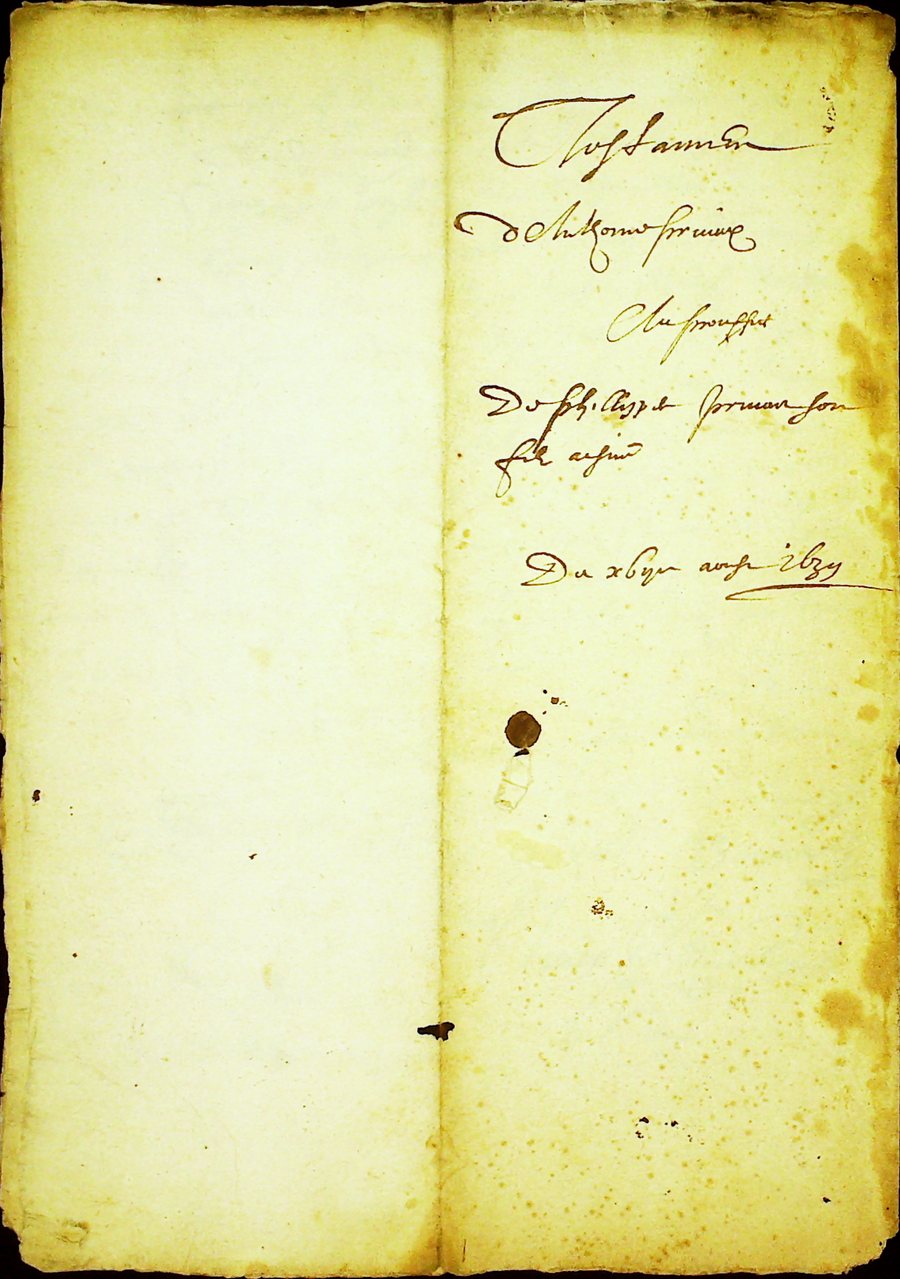 Testamen
d Anthoine privat
Au prouffict
De phillippe privat son
filz aisné
Du xvije aoust 1639